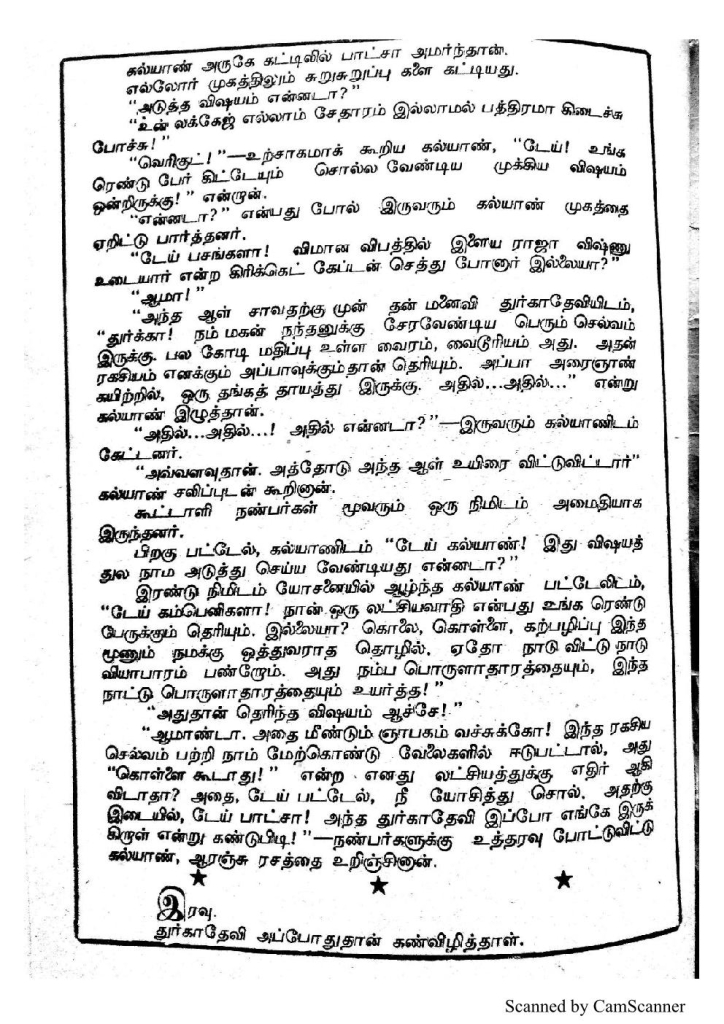 கல்யாண் அருகே கட்டிலில் பாட்சா அமர்ந்தான்.
எல்லோர் முகத்திலும் சுறுசுறுப்பு களை கட்டியது.
"அடுத்த விஷயம் என்னடா?"
"உன் லக்கேஜ் எல்லாம் சேதாரம் இல்லாமல் பத்திரமா கிடைச்சு
போச்சு!"
"வெரிகுட்!"—உற்சாகமாக் கூறிய கல்யாண், "டேய்! உங்க
ரெண்டு பேர் கிட்டேயும் சொல்ல வேண்டிய முக்கிய விஷயம்
ஒன்றிருக்கு!" என்றான்.
"என்னடா?" என்பது போல் இருவரும் கல்யாண் முகத்தை
ஏறிட்டு பார்த்தனர்.
"டேய் பசங்களா! விமான விபத்தில் இளைய ராஜா விஷ்ணு
உடையார் என்ற கிரிக்கெட் கேப்டன் செத்து போனார் இல்லையா?"
"ஆமா!"
"அந்த ஆள் சாவதற்கு முன் தன் மனைவி துர்காதேவியிடம்,
"துர்க்கா! நம் மகன் நந்தனுக்கு சேரவேண்டிய பெரும் செல்வம்
இருக்கு. பல கோடி மதிப்பு உள்ள வைரம், வைடூரியம் அது. அதன்
ரகசியம் எனக்கும் அப்பாவுக்கும்தான் தெரியும். அப்பா அரைஞாண்
கயிற்றில், ஒரு தங்கத் தாயத்து இருக்கு. அதில்...அதில்..." என்று
கல்யாண் இழுத்தான்.
"அதில்...அதில்...! அதில் என்னடா?"—இருவரும் கல்யாணிடம்
கேட்டனர்.
"அவ்வளவுதான். அத்தோடு அந்த ஆள் உயிரை விட்டுவிட்டார்"
கல்யாண் சலிப்புடன் கூறினான்.
கூட்டாளி நண்பர்கள் மூவரும் ஒரு நிமிடம் அமைதியாக
இருந்தனர்.
பிறகு பட்டேல், கல்யாணிடம் "டேய் கல்யாண்! இது விஷயத்
துல நாம அடுத்து செய்ய வேண்டியது என்னடா?"
இரண்டு நிமிடம் யோசனையில் ஆழ்ந்த கல்யாண் பட்டேலிடம்,
"டேய் கம்பெனிகளா! நான் ஒரு லட்சியவாதி என்பது உங்க ரெண்டு
பேருக்கும் தெரியும். இல்லையா? கொலை, கொள்ளை, கற்பழிப்பு இந்த
மூணும் நமக்கு ஒத்துவராத தொழில். ஏதோ நாடு விட்டு நாடு
வியாபாரம் பண்றோம். அது நம்ப பொருளாதாரத்தையும், இந்த
நாட்டு பொருளாதாரத்தையும் உயர்த்த!"
"அதுதான் தெரிந்த விஷயம் ஆச்சே!"
"ஆமாண்டா. அதை மீண்டும் ஞாபகம் வச்சுக்கோ! இந்த ரகசிய
செல்வம் பற்றி நாம் மேற்கொண்டு வேலைகளில் ஈடுபட்டால், அது
"கொள்ளை கூடாது!" என்ற எனது லட்சியத்துக்கு எதிர் ஆகி
விடாதா? அதை, டேய் பட்டேல், நீ யோசித்து சொல். அதற்கு
இடையில், டேய் பாட்சா! அந்த துர்காதேவி இப்போ எங்கே இருக்
கிறாள் என்று கண்டுபிடி!"—நண்பர்களுக்கு உத்தரவு போட்டுவிட்டு
கல்யாண், ஆரஞ்சு ரசத்தை உறிஞ்சினான்.
★ ★ ★
இரவு.
துர்காதேவி அப்போதுதான் கண்விழித்தாள்.
Scanned by CamScanner